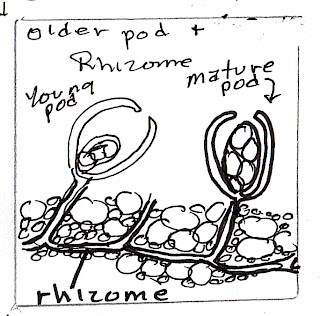 older pod +
Rhizome
young
pod
mature
pod
rhizome